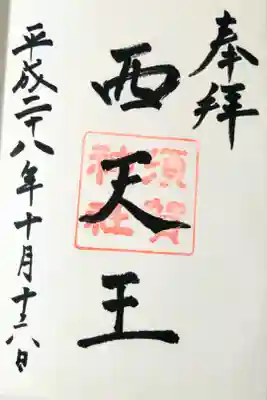 奉拝
西天王
須賀神社
平成二十八年十月十六日